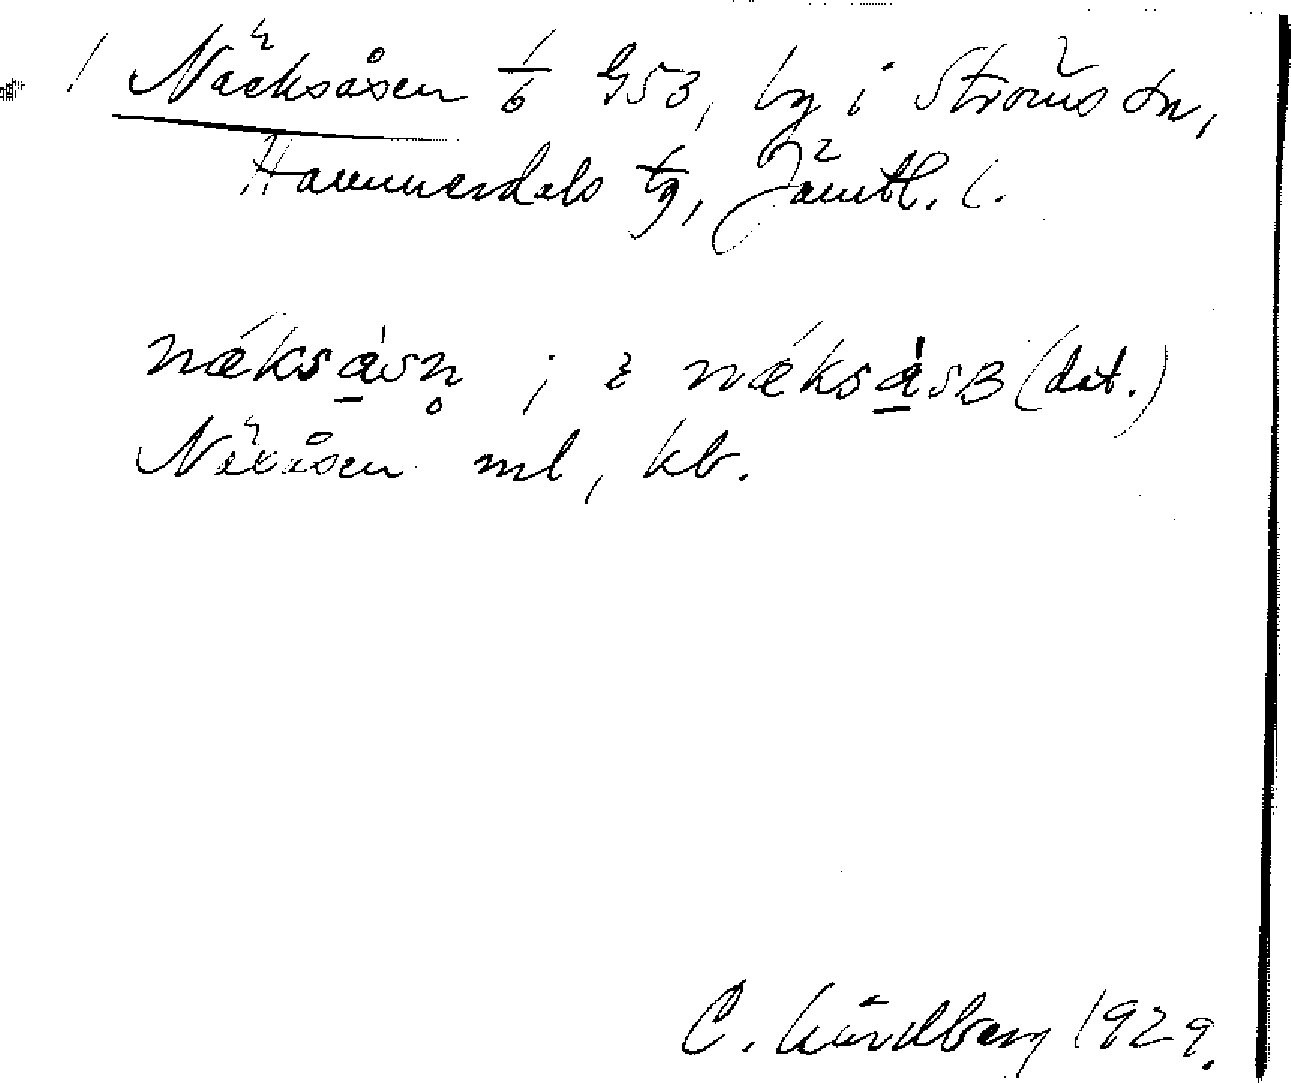 / Näcksåsen 1/6 G53, by i Ströms sn,
Hammerdals tg, Jämtl. l.
næksàsn̥ ; i næksàsɜ (dat.)
Näxåsen ml, kb.
C. Lindberg 1929.